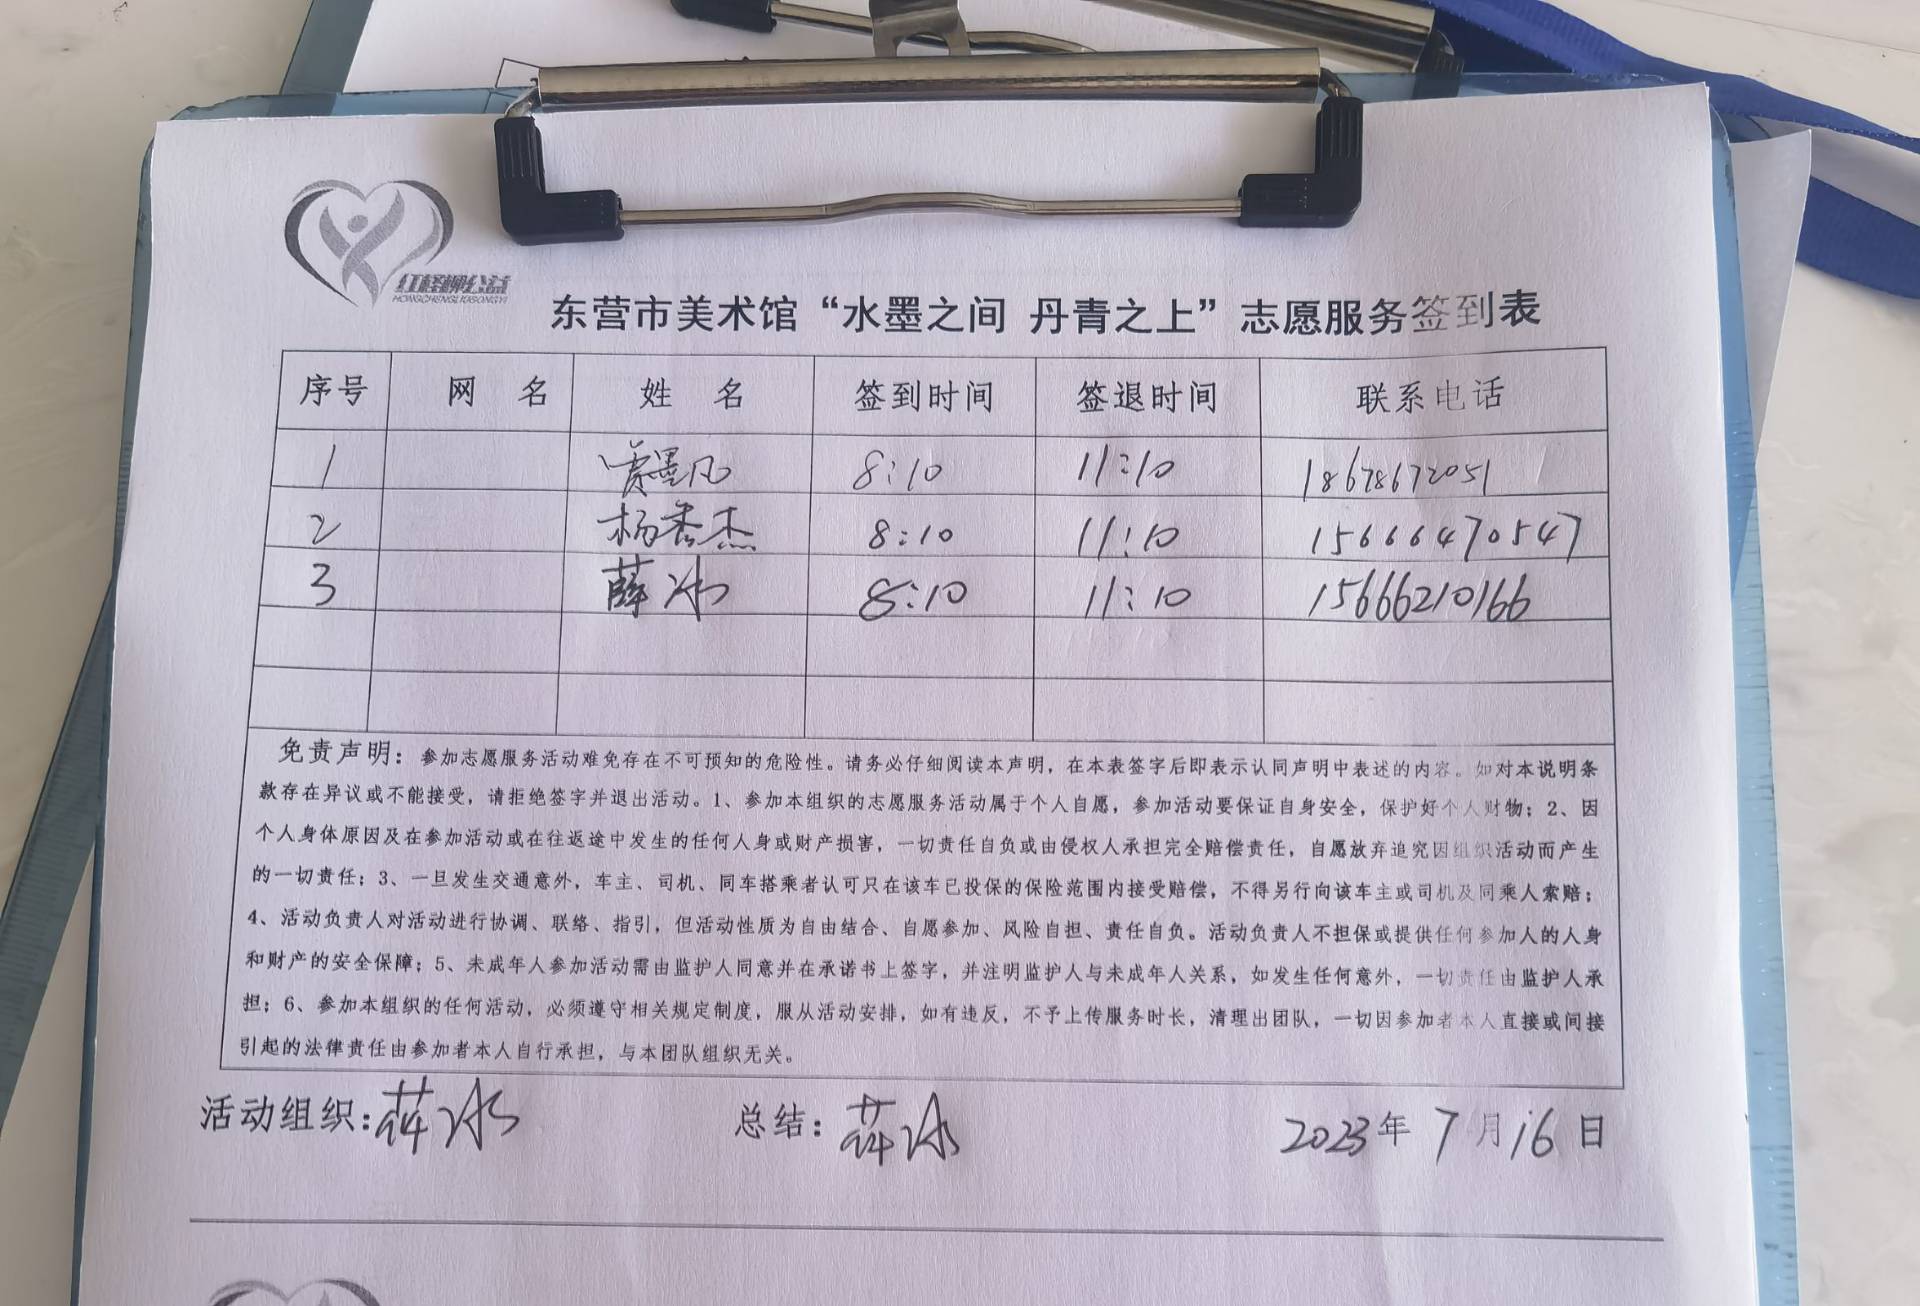 红柽柳公益
HONGCHENGLIUGONGYI
东营市美术馆“水墨之间 丹青之上”志愿服务签到表
序号 网 名 姓 名 签到时间 签退时间 联系电话
1 墨凡 8:10 11:10 18678672051
2 杨秀杰 8:10 11:10 15666470547
3 薛冰 8:10 11:10 15666210166
免责声明：参加志愿服务活动难免存在不可预知的危险性。请务必仔细阅读本声明，在本表签字后即表示认同声明中表述的内容。如对本说明条
款存在异议或不能接受，请拒绝签字并退出活动。1、参加本组织的志愿服务活动属于个人自愿，参加活动要保证自身安全，保护好个人财物；2、因
个人身体原因及在参加活动或在往返途中发生的任何人身或财产损害，一切责任自负或由侵权人承担完全赔偿责任，自愿放弃追究因组织活动而产生
的一切责任；3、一旦发生交通意外，车主、司机、同车搭乘者认可只在该车已投保的保险范围内接受赔偿，不得另行向该车主或司机及同乘人索赔；
4、活动负责人对活动进行协调、联络、指引，但活动性质为自由结合、自愿参加、风险自担、责任自负。活动负责人不担保或提供任何参加人的人身
和财产的安全保障；5、未成年人参加活动需由监护人同意并在承诺书上签字，并注明监护人与未成年人关系，如发生任何意外，一切责任由监护人承
担；6、参加本组织的任何活动，必须遵守相关规定制度，服从活动安排，如有违反，不予上传服务时长，清理出团队，一切因参加者本人直接或间接
引起的法律责任由参加者本人自行承担，与本团队组织无关。
活动组织：薛冰 总结：薛冰 2023年7月16日